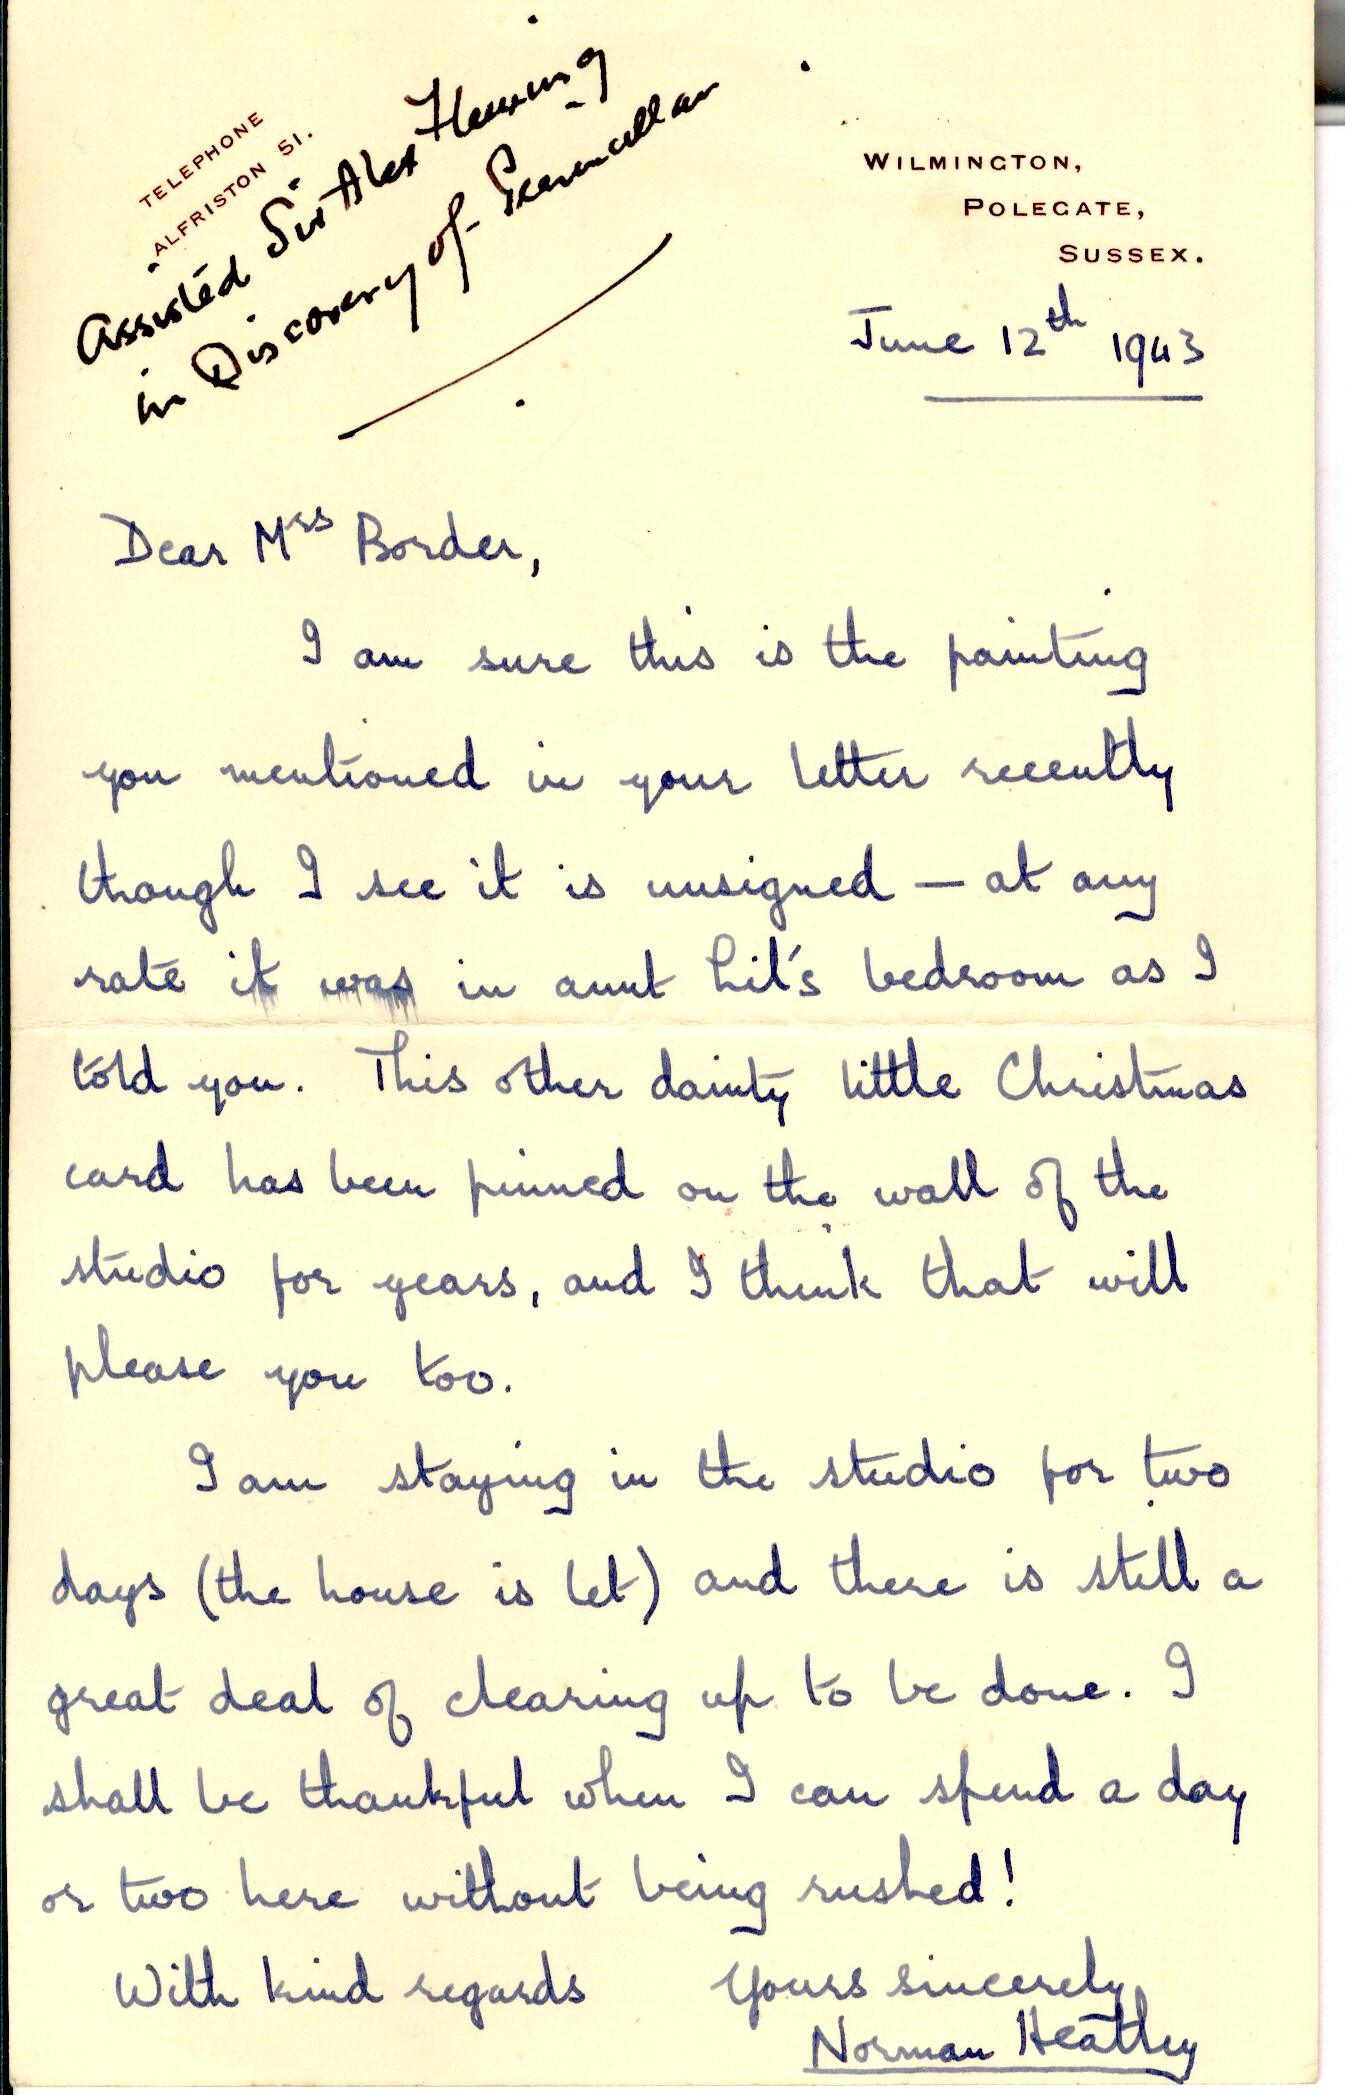 TELEPHONE
ALFRISTON 51.
Assisted Sir Alex Fleming
in Discovery of
WILMINGTON,
POLEGATE,
SUSSEX.
June 12th 1943
Dear Mrs Border,
I am sure this is the painting
you mentioned in your letter recently
though I see it is unsigned — at any
rate it was in aunt Lil's bedroom as I
told you. This other dainty little Christmas
card has been pinned on the wall of the
studio for years, and I think that will
please you too.
I am staying in the studio for two
days (the house is let) and there is still a
great deal of clearing up to be done. I
shall be thankful when I can spend a day
or two here without being rushed!
With kind regards Yours sincerely
Norman Heatley